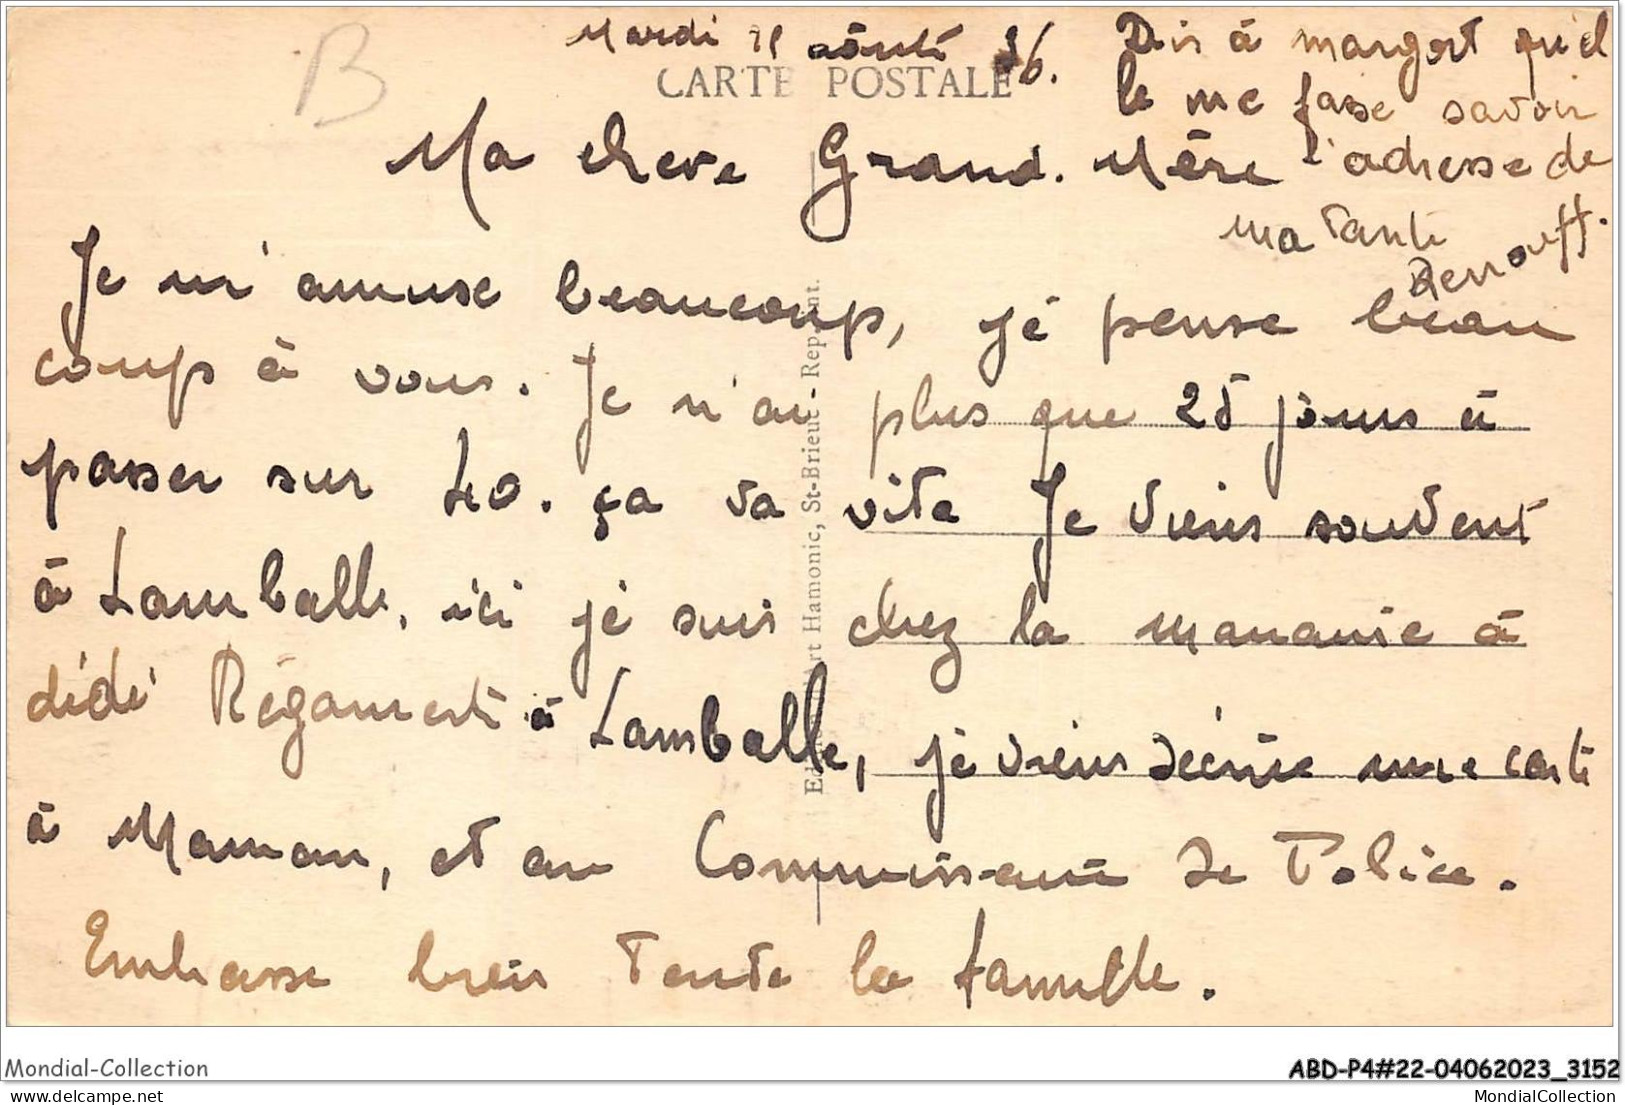 B
Mardi 11 aôuté 36.
CARTE POSTALE
Dis à margot qu'el
le me fasse savoir
l'adresse de
ma Tante
Renouff.
Ma chere Grand. Mère
Je m'amuse beaucoup, je pense beau
coup à vous. Je n'ai plus que 25 jours à
passer sur 40. ça va vite Je viens souvent
à Lamballe, ici je suis chez la mananie à
dédé Régament à Lamballe, je viens décrire une carte
à Maman, et au Commissaire de Police.
Embrasse bien Toute la famille.
Art Hamonic, St-Brieuc - Rep. int.
Mondial-Collection
ABD-P4#22-04062023_3152
Mondial-Collection.com
MondialCollection